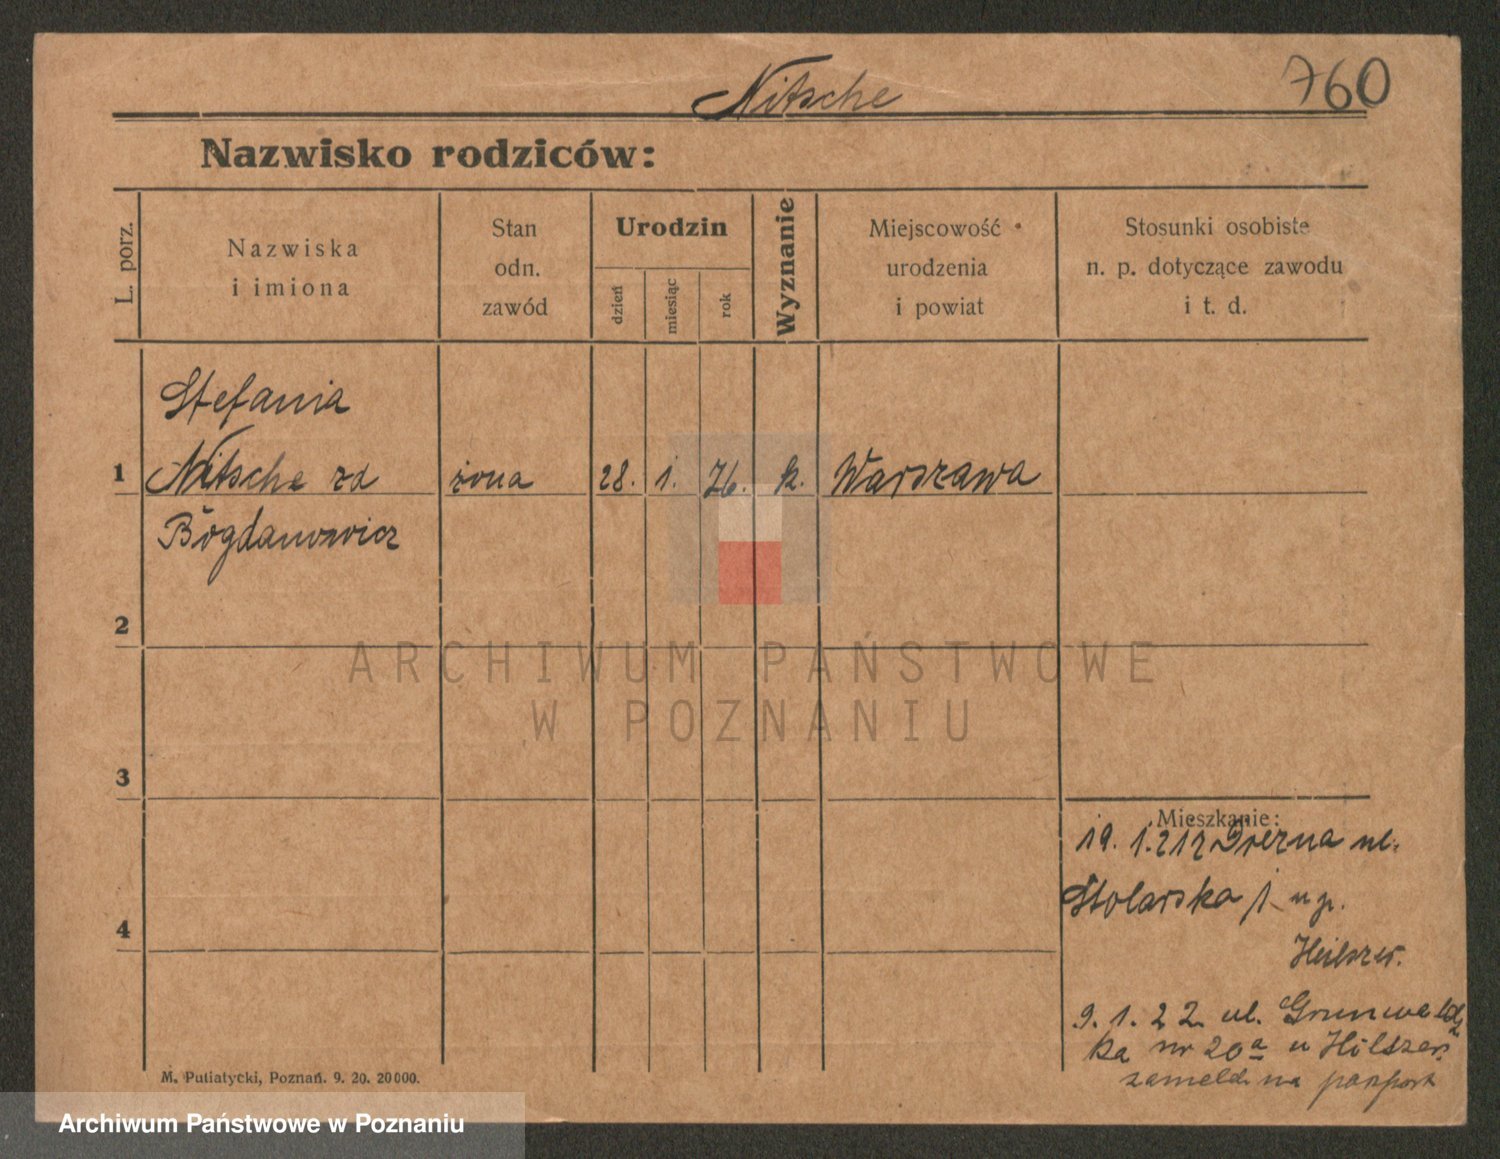 Nitsche
760
Nazwisko rodziców:
L. porz.
Nazwiska
i imiona
Stan
odn.
zawód
Urodzin
dzień
miesiąc
rok
Wyznanie
Miejscowość
urodzenia
i powiat
Stosunki osobiste
n. p. dotyczące zawodu
i t. d.
Stefania
1 Nitsche zd żona 28. 1. 76. k. Warszawa
Bogdanowicz
2
ARCHIWUM PAŃSTWOWE
W POZNANIU
3
Mieszkanie:
19. 1. ul.
4 Stolarska 1 u p.
9. 1. 22 ul. Grunwaldz
ka nr 20a u
zameld. na paszport
M. Putiatycki, Poznań. 9. 20. 20000.
Archiwum Państwowe w Poznaniu